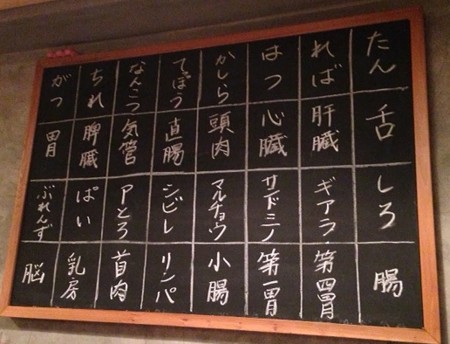 たん
舌
れば
肝臓
はつ
心臓
かしら
頭肉
てっぽう
直腸
なんこつ
気管
ちれ
脾臓
がつ
胃
しろ
腸
ギアラ
第四胃
サンドミノ
第一胃
マルチョウ
小腸
シビレ
リンパ
Pとろ
首肉
ぱい
乳房
ぶれんず
脳